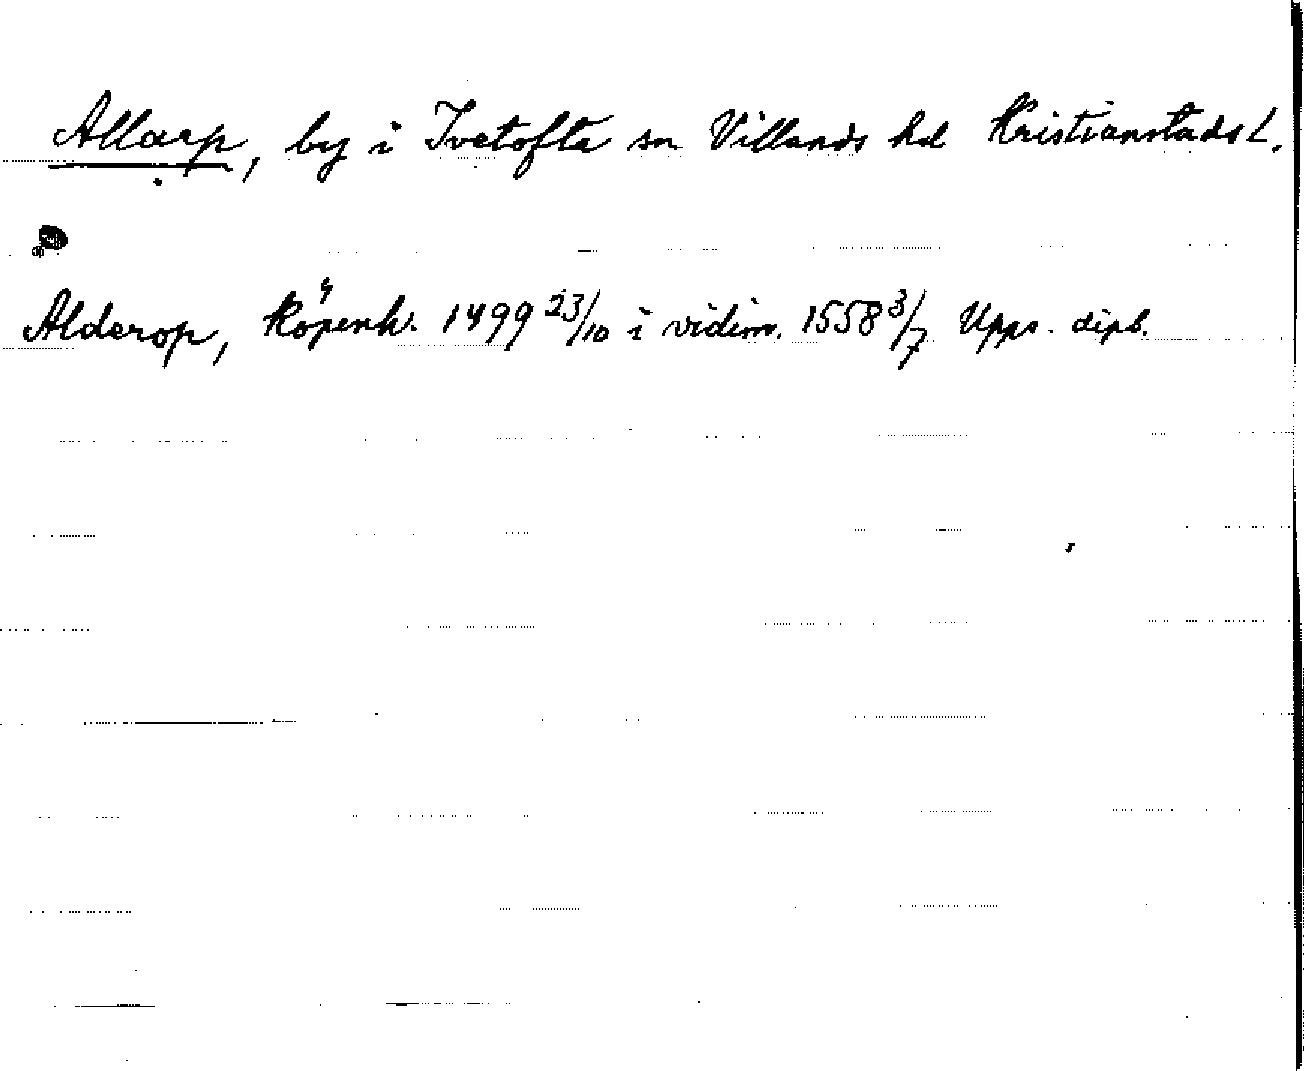 Allarp, by i Ivetofta sn Villands hd Kristianstads L.
Alderop, Köpenh. 1499 23/10 i vidim. 1558 3/7 Upps. dipl.